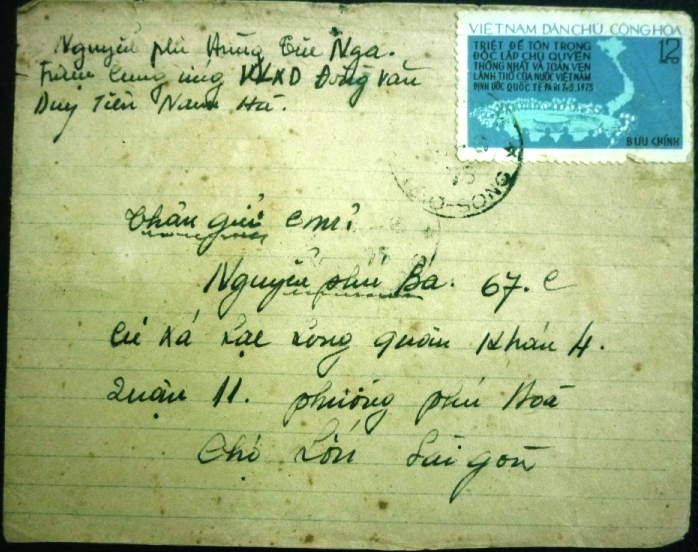 Nguyễn phú Hùng Túc Nga.
Trạm Cung ứng VLXD Đồng Văn
Duy Tiên Nam Hà.
VIỆT NAM DÂN CHỦ CỘNG HÒA
TRIỆT ĐỂ TÔN TRỌNG
ĐỘC LẬP CHỦ QUYỀN
THỐNG NHẤT VÀ TOÀN VẸN
LÃNH THỔ CỦA NƯỚC VIỆT NAM
ĐỊNH ƯỚC QUỐC TẾ PA RI 2.3.1973
12 xu
BƯU CHÍNH
75
Thân gửi em:
Nguyễn phú Bá. 67. C
Cư xá Lạc Long quân Khán 4.
Quận 11. phường phú Hoà
Chợ Lớn Sài gòn